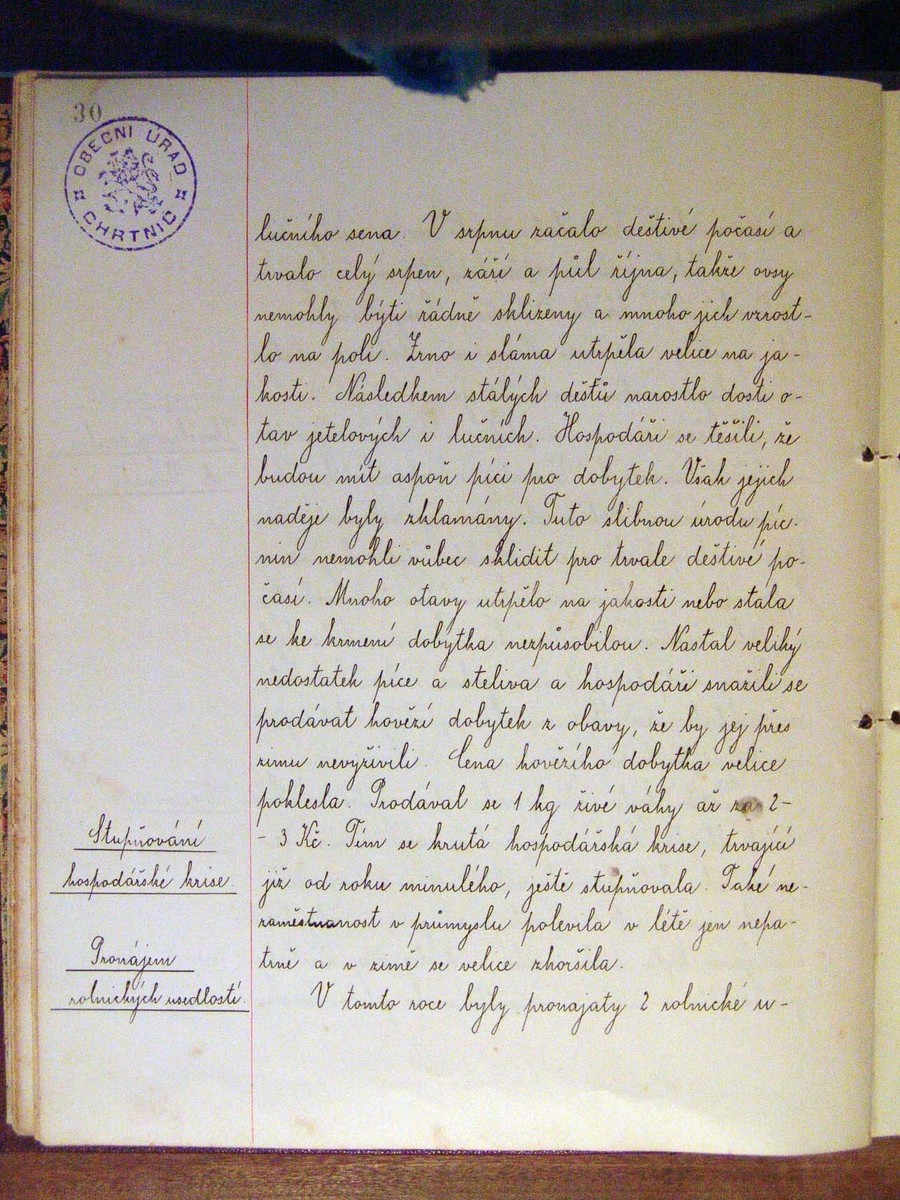 30
OBECNÍ ÚŘAD
CHRTNIC
lučního sena. V srpnu začalo deštivé počasí a
trvalo celý srpen, září a půl října, takže ovsy
nemohly býti řádně sklizeny a mnoho jich vzrost-
lo na poli. Zrno i sláma utrpěla velice na ja-
kosti. Následkem stálých dešťů narostlo dosti o-
tav jetelových i lučních. Hospodáři se těšili, že
budou mít aspoň píci pro dobytek. Však jejich
naděje byly zklamány. Tuto slibnou úrodu píc-
nin nemohli vůbec sklidit pro trvale deštivé po-
časí. Mnoho otavy utrpělo na jakosti nebo stala
se ke krmení dobytka nezpůsobilou. Nastal veliký
nedostatek píce a steliva a hospodáři snažili se
prodávat hovězí dobytek z obavy, že by jej přes
zimu nevyživili. Cena hovězího dobytka velice
poklesla. Prodával se 1 kg živé váhy až za 2-
- 3 Kč. Tím se krutá hospodářská krise, trvající
již od roku minulého, ještě stupňovala. Také ne-
zaměstnanost v průmyslu polevila v létě jen nepa-
trně a v zimě se velice zhoršila.
V tomto roce byly pronajaty 2 rolnické u-
Stupňování
hospodářské krise.
Pronájem
rolnických usedlostí.